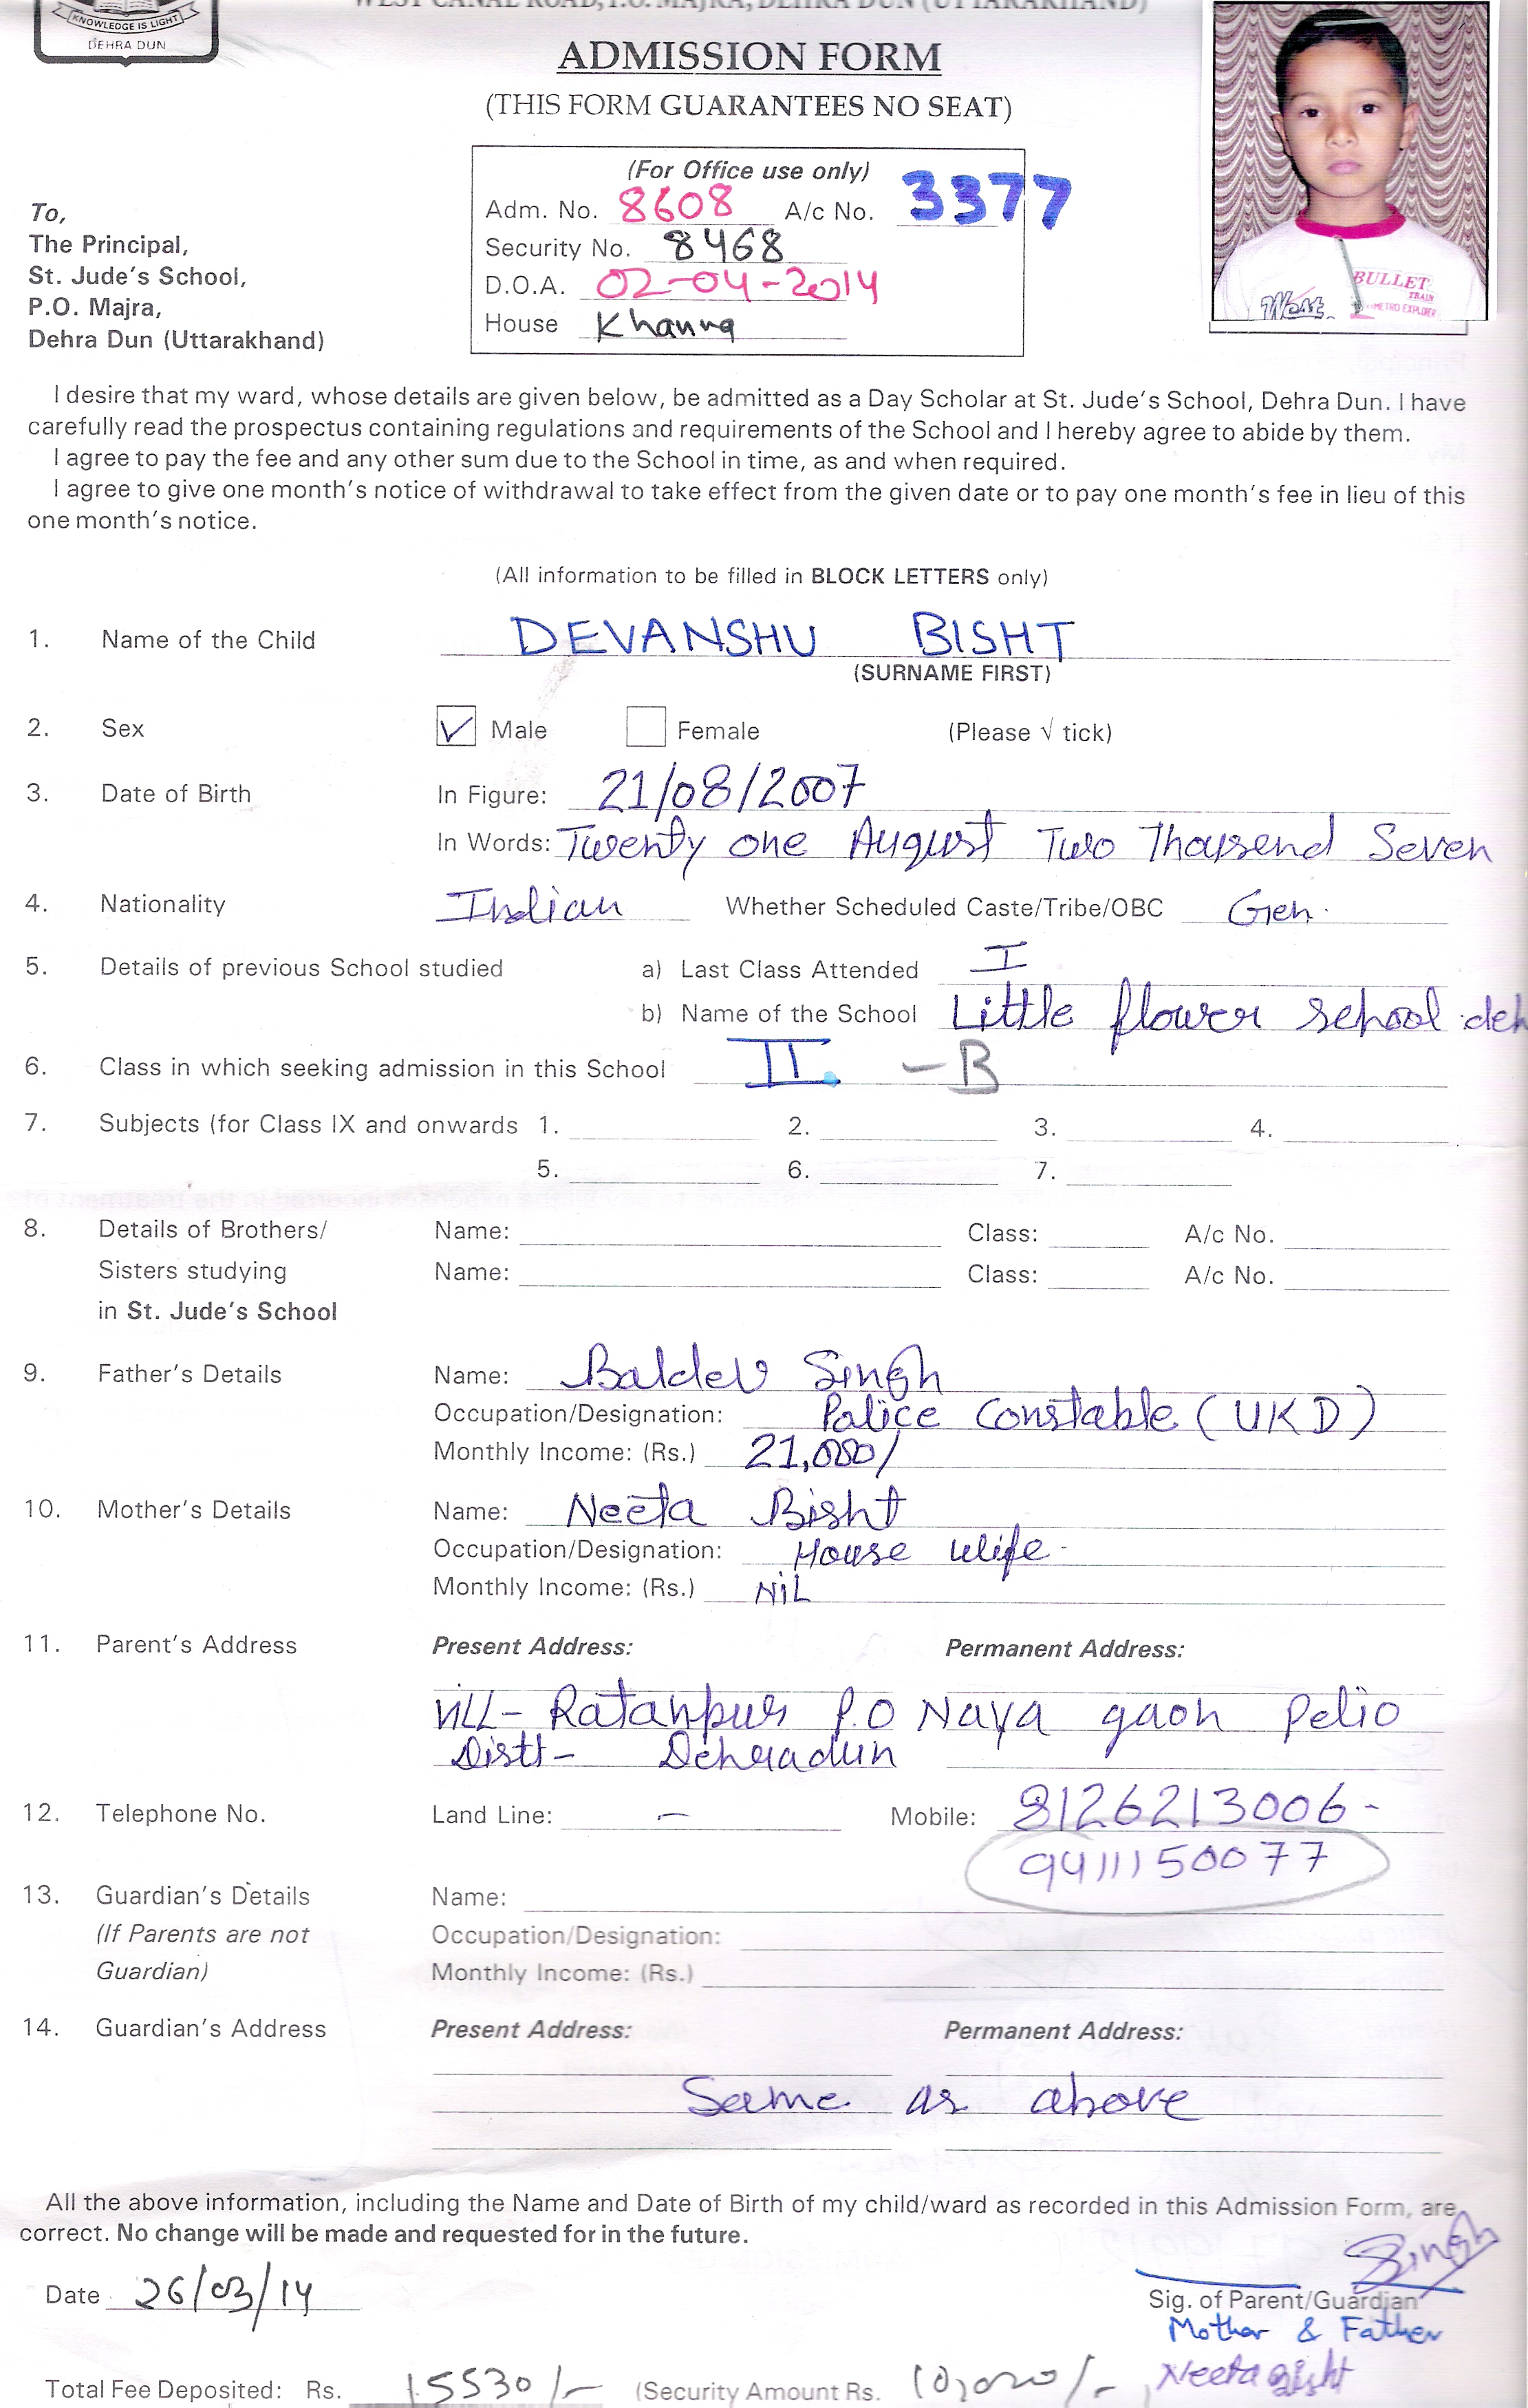 KNOWLEDGE IS LIGHT
DEHRA DUN
WEST CANAL ROAD, P.O. MAJRA, DEHRA DUN (UTTARAKHAND)
ADMISSION FORM
(THIS FORM GUARANTEES NO SEAT)
(For Office use only)
Adm. No. 8608 A/c No. 3377
Security No. 8468
D.O.A. 02-04-2014
House Khanna
To,
The Principal,
St. Jude's School,
P.O. Majra,
Dehra Dun (Uttarakhand)
BULLET
TRAIN
METRO EXPLORER
West
I desire that my ward, whose details are given below, be admitted as a Day Scholar at St. Jude's School, Dehra Dun. I have
carefully read the prospectus containing regulations and requirements of the School and I hereby agree to abide by them.
I agree to pay the fee and any other sum due to the School in time, as and when required.
I agree to give one month's notice of withdrawal to take effect from the given date or to pay one month's fee in lieu of this
one month's notice.
(All information to be filled in BLOCK LETTERS only)
1. Name of the Child DEVANSHU BISHT
(SURNAME FIRST)
2. Sex ✓ Male Female (Please √ tick)
3. Date of Birth In Figure: 21/08/2007
In Words: Twenty one August Two Thousend Seven
4. Nationality Indian Whether Scheduled Caste/Tribe/OBC Gen.
5. Details of previous School studied a) Last Class Attended I
b) Name of the School Little flower school deh
6. Class in which seeking admission in this School II. - B
7. Subjects (for Class IX and onwards 1. 2. 3. 4.
5. 6. 7.
8. Details of Brothers/ Name: Class: A/c No.
Sisters studying Name: Class: A/c No.
in St. Jude's School
9. Father's Details Name: Baldev Singh
Occupation/Designation: Palice Constable (UKD)
Monthly Income: (Rs.) 21,000/
10. Mother's Details Name: Neeta Bisht
Occupation/Designation: House wife.
Monthly Income: (Rs.) NiL
11. Parent's Address Present Address: Permanent Address:
Vill- Ratanpur P.O Naya gaon Pelio
Distt- Dehradun
12. Telephone No. Land Line: - Mobile: 8126213006-
9411150077
13. Guardian's Details Name:
(If Parents are not Occupation/Designation:
Guardian) Monthly Income: (Rs.)
14. Guardian's Address Present Address: Permanent Address:
Same as above
All the above information, including the Name and Date of Birth of my child/ward as recorded in this Admission Form, are
correct. No change will be made and requested for in the future.
Singh
Date 26/03/14 Sig. of Parent/Guardian
Mother & Father
Total Fee Deposited: Rs. 15530/- (Security Amount Rs. 10,000/- Neeta Bisht